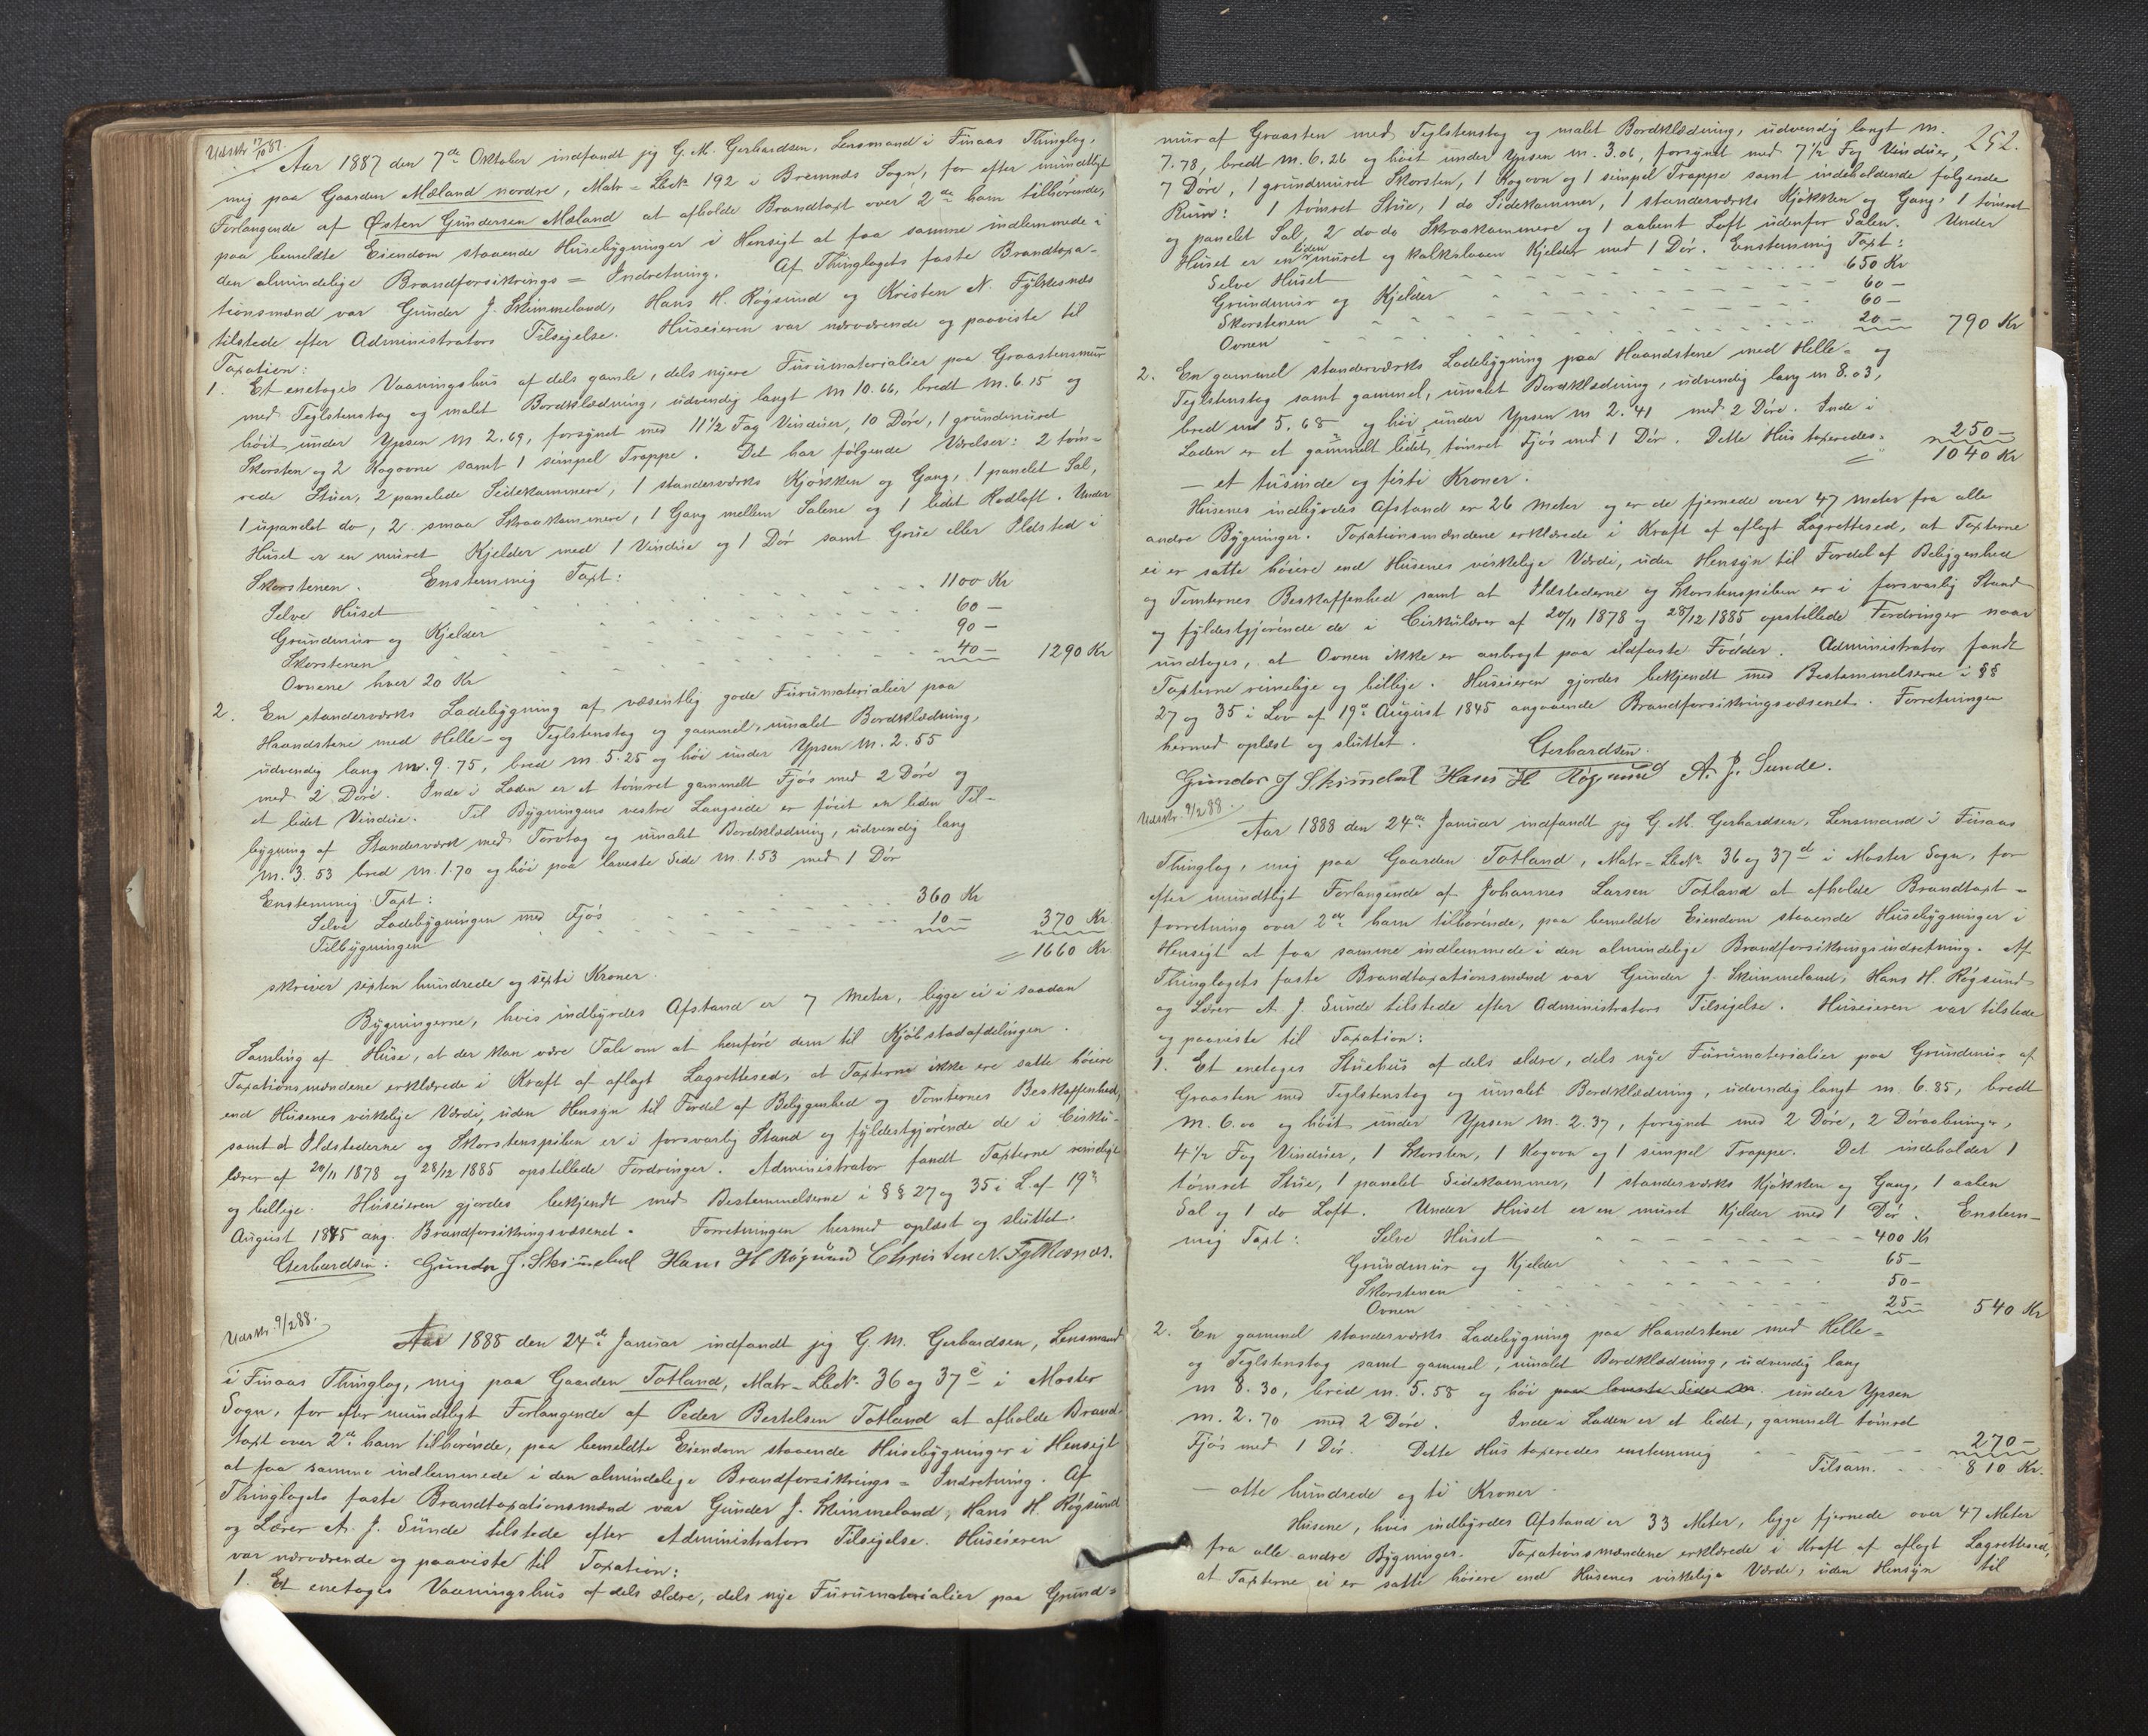 Udskr. 17/10 87.
Aar 1887 den 7de Oktober indfandt jeg G. M. Gerhardsen, Lensmand i Finaas Thinglag,
mig paa Gaarden Mæland nordre, Matr-Lbn. 192 i Bremnæs Sogn, for efter mundtligt
Forlangende af Østen Gundersen Mæland at afholde Brandtaxt over 2de ham tilhørende,
paa bemeldte Eiendom staaende Husebygninger i Hensigt at faa samme indlemmede i
den almindelige Brandforsikrings=Indretning. Af Thinglagets faste Brandtaxa-
tionsmænd var Gunder J. Skimmeland, Hans H. Røgsund og Kristen N. Fylkesnæs
tilstede efter Administrators Tilsigelse. Huseieren var nærværende og paaviste til
Taxation:
1. Et enetages Vaaningshus af dels gamle, dels nyere Furumaterialier paa Graastensmur
med Teglstenstag og malet Bordklædning, udvendig langt m 10.66, bredt m. 6.15 og
høit under Ypsen m 2.69, forsynet med 11½ Fag Vinduer, 10 Døre, 1 grundmuret
Skorsten og 2 Kogovne samt 1 simpel Trappe. Det har følgende Værelser: 2 tøm-
rede Stuer, 2 panelede Sidekammere, 1 standerværks Kjøkken og Gang, 1 panelet Sal,
1 upanelet do, 2 smaa Skraakammere, 1 Gang mellem Salene og 1 lidet Kodloft. Under
Huset er en muret Kjelder med 1 Vindue og 1 Dør samt Grue eller Ildsted i
Skorstenen. Enstemmig Taxt:
Selve Huset 1100 Kr
Grundmur og Kjelder 60 —
Skorstenen 90 —
Ovnene hver 20 Kr 40 — 1290 Kr
2. En standerværks Ladebygning af væsentlig gode Furumaterialier paa
Haandstene med Helle- og Teglstenstag og gammel, umalet Bordklædning,
udvendig lang m. 9.75, bred m. 5.25 og høi under Ypsen m. 2.55
med 2 Døre. Inde i Laden er et tømret gammelt Fjøs med 2 Døre og
et lidet Vindue. Til Bygningens vestre Langside er føiet en liden Til-
bygning af Standerværk med Torvtag og umalet Bordklædning, udvendig lang
m. 3.53 bred m. 1.70 og høi paa laveste Side m. 1.53 med 1 Dør
Enstemmig Taxt:
Selve Ladebygningen med Fjøs 360 Kr
Tilbygningen 10 — 370 Kr.
= 1660 Kr.
skriver sexten hundrede og sexti Kroner.
Bygningerne, hvis indbyrdes Afstand er 7 Meter, ligge ei i saadan
Samling af Huse, at der kan være Tale om at henføre dem til Kjøbstadafdelingen.
Taxationsmændene erklærede i Kraft af aflagt Lagrettesed, at Taxterne ikke ere satte høiere
end Husenes virkelige Værdi, uden Hensyn til Fordel af Beliggenhed og Tomternes Beskaffenhed,
samt at Ildstederne og Skorstenspiben er i forsvarlig Stand og fyldestgjørende de i Cirku-
lærer af 20/11 1878 og 28/12 1885 opstillede Fordringer. Administrator fandt Taxterne rimelige
og billige. Huseieren gjordes bekjendt med Bestemmelserne i §§ 27 og 35 i L. af 19de
August 1845 ang. Brandforsikringsvæsenet. Forretningen hermed oplæst og sluttet.
Gerhardsen. Gunder J. Skimeland Hans H Røgsund Christen N. Fylkesnæs.
Udskr. 9/2 88.
Aar 1888 den 24de Januar indfandt jeg G. M. Gerhardsen, Lensmand
i Finaas Thinglag, mig paa Gaarden Totland, Matr-Lbn. 36 og 37c i Moster
Sogn, for efter mundtligt Forlangende af Peder Bertelsen Totland at afholde Brand-
taxt over 2de ham tilhørende, paa bemeldte Eiendom staaende Husebygninger i Hensigt
at faa samme indlemmede i den almindelige Brandforsikrings=Indretning. Af
Thinglagets faste Brandtaxationsmænd var Gunder J. Skimmeland, Hans H. Røgsund
og Lærer A. J. Sunde tilstede efter Administrators Tilsigelse. Huseieren
var nærværende og paaviste til Taxation:
1. Et enetages Vaaningshus af dels ældre, dels nye Furumaterialier paa Grund=
252.
mur af Graasten med Teglstenstag og malet Bordklædning, udvendig langt m.
7.78, bredt m. 6.26 og høit under Ypsen m. 3.06, forsynet med 7½ Fag Vinduer,
7 Døre, 1 grundmuret Skorsten, 1 Kogovn og 1 simpel Trappe samt indeholdende følgende
Rum: 1 tømret Stue, 1 do Sidekammer, 1 standerværks Kjøkken og Gang, 1 tømret
og panelet Sal, 2 do do Skraakammere og 1 aabent Loft udenfor Salen. Under
Huset er en liden muret og kalkslaaen Kjelder med 1 Dør. Enstemmig Taxt:
Selve Huset 650 Kr
Grundmur og Kjelder 60 —
Skorstenen 60 —
Ovnen 20 — 790 Kr
2. En gammel standerværks Ladebygning paa Haandstene med Helle- og
Teglstenstag samt gammel, umalet Bordklædning, udvendig lang m 8.03,
bred m 5.68 og høi under Ypsen m 2.41 med 2 Døre. Inde i
Laden er et gammelt lidet, tømret Fjøs med 1 Dør. Dette Hus taxeredes 250 —
= 1040 Kr
— et tusinde og firti Kroner.
Husenes indbyrdes Afstand er 26 Meter og er de fjernede over 47 Meter fra alle
andre Bygninger. Taxationsmændene erklærede i Kraft af aflagt Lagrettesed, at Taxterne
ei er satte høiere end Husenes virkelige Værdi, uden Hensyn til Fordel af Beliggenhed
og Tomternes Beskaffenhed samt at Ildstederne og Skorstenspiben er i forsvarlig Stand
og fyldestgjørende de i Cirkulærer af 20/11 1878 og 28/12 1885 opstillede Fordringer naar
undtages, at Ovnen ikke er anbragt paa ildfaste Fødder. Administrator fandt
Taxterne rimelige og billige. Huseieren gjordes bekjendt med Bestemmelserne i §§
27 og 35 i Lov af 19de August 1845 angaaende Brandforsikringsvæsenet. Forretningen
hermed oplæst og sluttet.
Gerhardsen.
Gunder J Skimeland Hans H Røgsund A. J. Sunde.
Udskr. 9/2 88.
Aar 1888 den 24de Januar indfandt jeg G. M. Gerhardsen, Lensmand i Finaas
Thinglag, mig paa Gaarden Totland, Matr-Lbn. 36 og 37d i Moster Sogn, for
efter mundtligt Forlangende af Johannes Larsen Totland at afholde Brandtaxt-
forretning over 2de ham tilhørende, paa bemeldte Eiendom staaende Husebygninger i
Hensigt at faa samme indlemmede i den almindelige Brandforsikringsindretning. Af
Thinglagets faste Brandtaxationsmænd var Gunder J. Skimmeland, Hans H. Røgsund
og Lærer A J. Sunde tilstede efter Administrators Tilsigelse. Huseieren var tilstede
og paaviste til Taxation:
1. Et enetages Stuehus af dels ældre, dels nye Furumaterialier paa Grundmur af
Graasten med Teglstenstag og umalet Bordklædning, udvendig langt m. 6.85, bredt
m. 6.00 og høit under Ypsen m. 2.37, forsynet med 2 Døre, 2 Døraabninger,
4½ Fag Vinduer, 1 Skorsten, 1 Kogovn og 1 simpel Trappe. Det indeholder 1
tømret Stue, 1 panelet Sidekammer, 1 standerværks Kjøkken og Gang, 1 aaben
Sal og 1 do Loft. Under Huset er en muret Kjelder med 1 Dør. Enstem-
mig Taxt: Selve Huset 400 Kr
Grundmur og Kjelder 65 —
Skorstenen 50 —
Ovnen 25 — 540 Kr
2. En gammel standerværks Ladebygning paa Haandstene med Helle=
og Teglstenstag samt gammel, umalet Bordklædning, udvendig lang
m 8.30, bred m. 5.55 og høi paa laveste Side m. under Ypsen
m. 2.70 med 2 Døre. Inde i Laden er et lidet, gammelt tømret
Fjøs med 1 Dør. Dette Hus taxeredes enstemmig 270 —
Tilsam. 810 Kr.
— otte hundrede og ti Kroner.
Husene, hvis indbyrdes Afstand er 33 Meter, ligge fjernede over 47 Meter
fra alle andre Bygninger. Taxationsmændene erklærede i Kraft af aflagt Lagrettesed,
at Taxterne ei er satte høiere end Husenes virkelige Værdi, uden Hensyn til